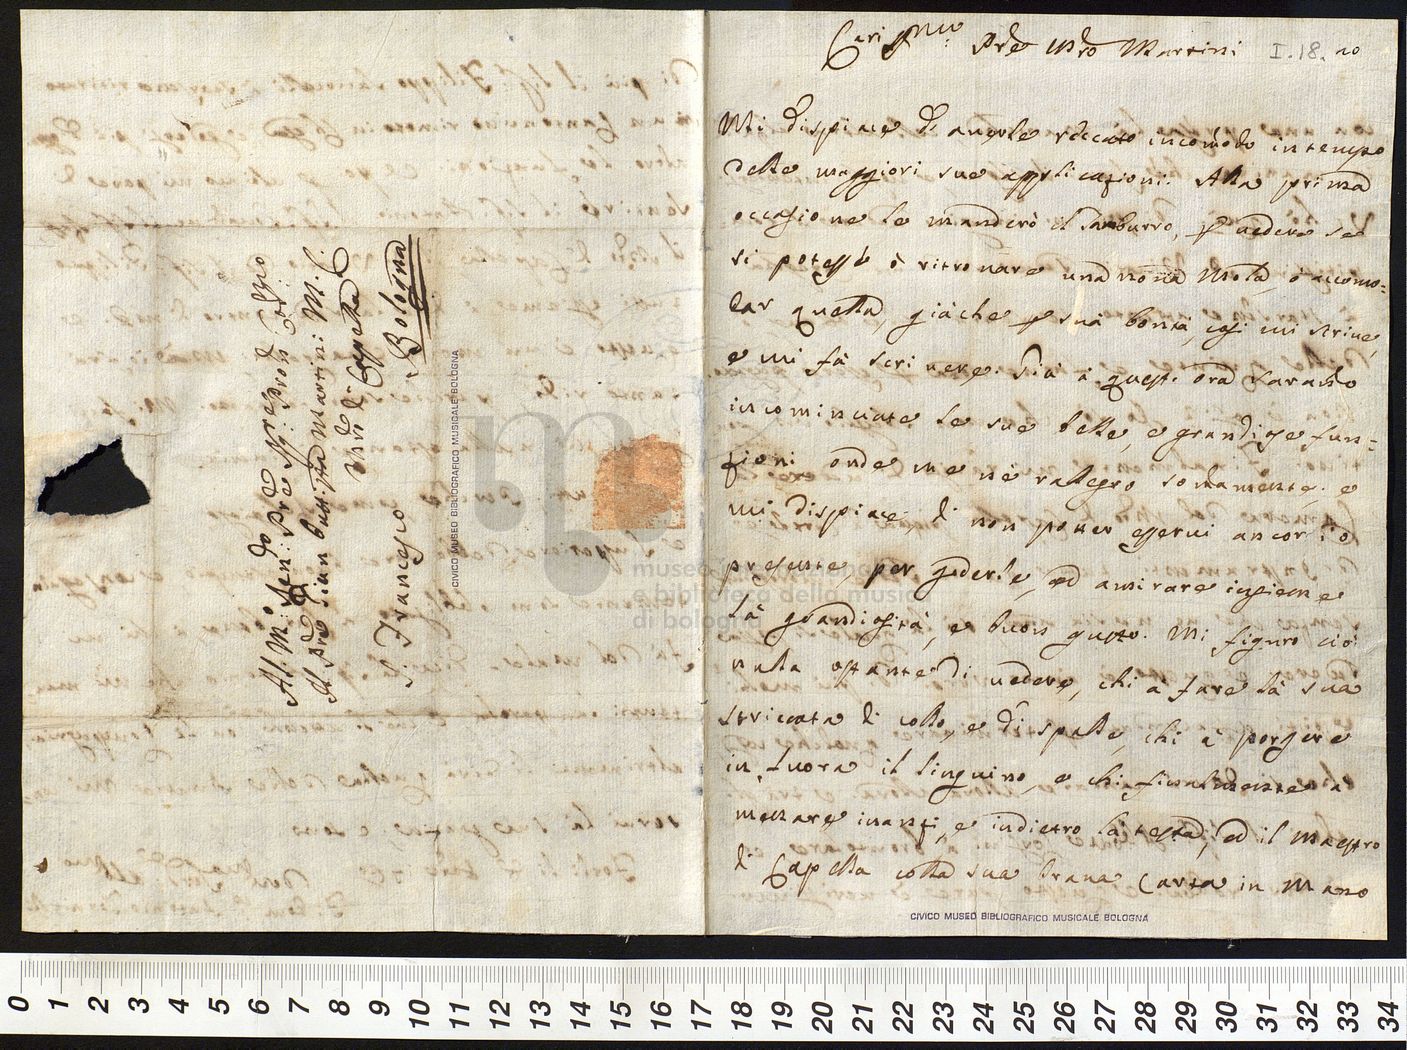 Cariss.mo Pre Mro Martini
I. 18. 20
Mi dispiace d' averle reccato incomodo in tempo
delle maggiori sue applicazioni. Alla prima
occasione le manderò il Tamburro, p vedere se
si potesse ò ritrovare una nova Mola, ò accomo=
dar quella, giàche p sua bontà, così mi scrive,
e mi fà scrivere. Sia à quest. ora saranno
incominciate le sue belle, e grandiose fun=
zioni onde me ne rallegro somamente, e
mi dispiace, di non poter esservi ancor io
presente, per goderle, ed amirare insieme
la grandiosità, e buon gusto. Mi figuro ciò
nulla ostante di vedere, chi a fare la sua
striccata di collo, e di spalle, chi à porgere
in fuora il linguino, e chi finalmente à
menare inanzi, e indietro la testa, ed il Maestro
di Capella colla sua brava Carta in Mano
Al M.o Rendo Pre Sig: Pron Col:mo
Il Pre Gian Batt:a Martini M. C.
Mro di Capella
S. Francesco
Bologna
CIVICO MUSEO BIBLIOGRAFICO MUSICALE BOLOGNA
CIVICO MUSEO BIBLIOGRAFICO MUSICALE BOLOGNA
museo internazionale
e biblioteca della musica
di bologna
0 1 2 3 4 5 6 7 8 9 10 11 12 13 14 15 16 17 18 19 20 21 22 23 24 25 26 27 28 29 30 31 32 33 34